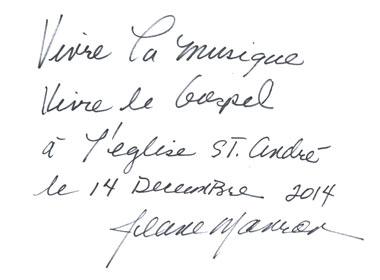 Vivre la musique
Vivre le Gospel
à l'église ST. André
le 14 Decembre 2014
Jeane Manson